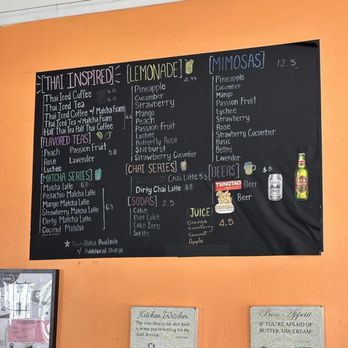 [THAI INSPIRED]
Thai Iced Coffee 6.0
Thai Iced Tea
Thai Iced Coffee w/ Matcha Foam
Thai Iced Tea w/ Matcha Foam
Half Thai Tea Half Thai Coffee
[FLAVORED TEAS]
Peach Passion Fruit
Rose Lavender 5.0
Lychee
[MATCHA SERIES]
Matcha Latte 6.0
Pistachio Matcha Latte
Mango Matcha Latte
Strawberry Matcha Latte
Dirty Matcha Latte 6.5
Coconut Matcha
Boba Available
Additional Charge
[LEMONADE]
Pineapple
Cucumber
Strawberry
Mango
Peach
Passion Fruit
Lychee
Butterfly Rose
Strawberry Cucumber
[CHAI SERIES]
Chai Latte 5.5
Dirty Chai Latte 6.5
[SODAS] 2.5
Coke
Diet Coke
Coke Zero
Sprite
[MIMOSAS] 12.5
Pineapple
Cucumber
Mango
Passion Fruit
Lychee
Strawberry
Peach
Rose
Strawberry Cucumber
Basil
Lavender
[BEERS] $5
TSINGTAO
Beer
Beer
JUICE 4.5
Orange
Cranberry
Coconut
Apple
Kitchen Wisdom
The only time to eat diet food
is when you're waiting for the
steak to cook.
Bon Appetit
IF YOU'RE AFRAID OF
BUTTER, USE CREAM!